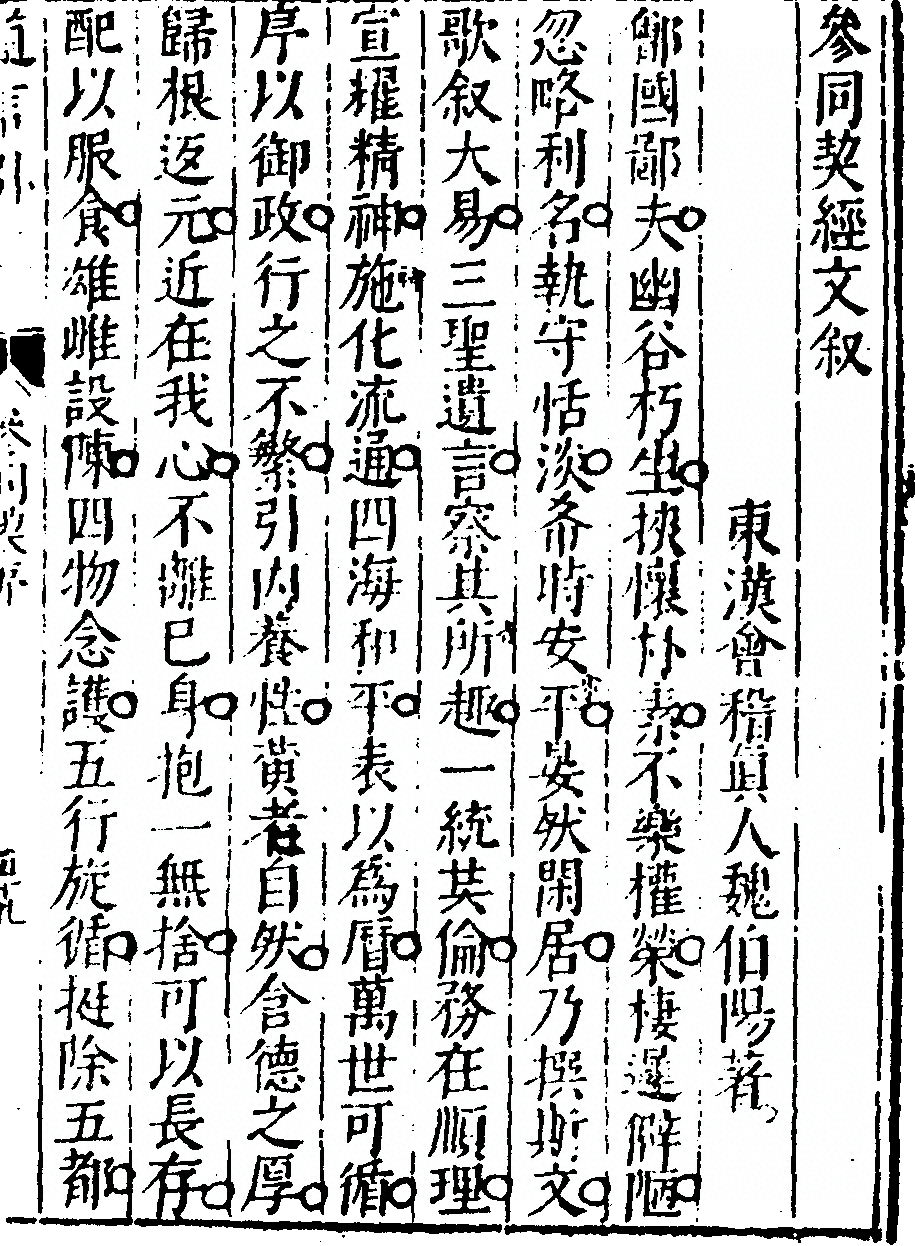 參同契經文叙
東漢會稽眞人魏伯陽著
鄶國鄙夫幽谷朽坐挾懷朴素不樂權榮棲遲僻陋
忽略利名執守恬淡希時安平晏然閑居乃撰斯文
歌叙大易三聖遺言察其所趣一統共倫務在順理
宣耀精神施化流通四海和平表以爲曆萬世可循
序以御政行之不繁引内養性黃老自然含德之厚
歸根返元近在我心不離已身抱一無捨可以長存
配以服食雄雌設陳四物念護五行旋循挺除五都